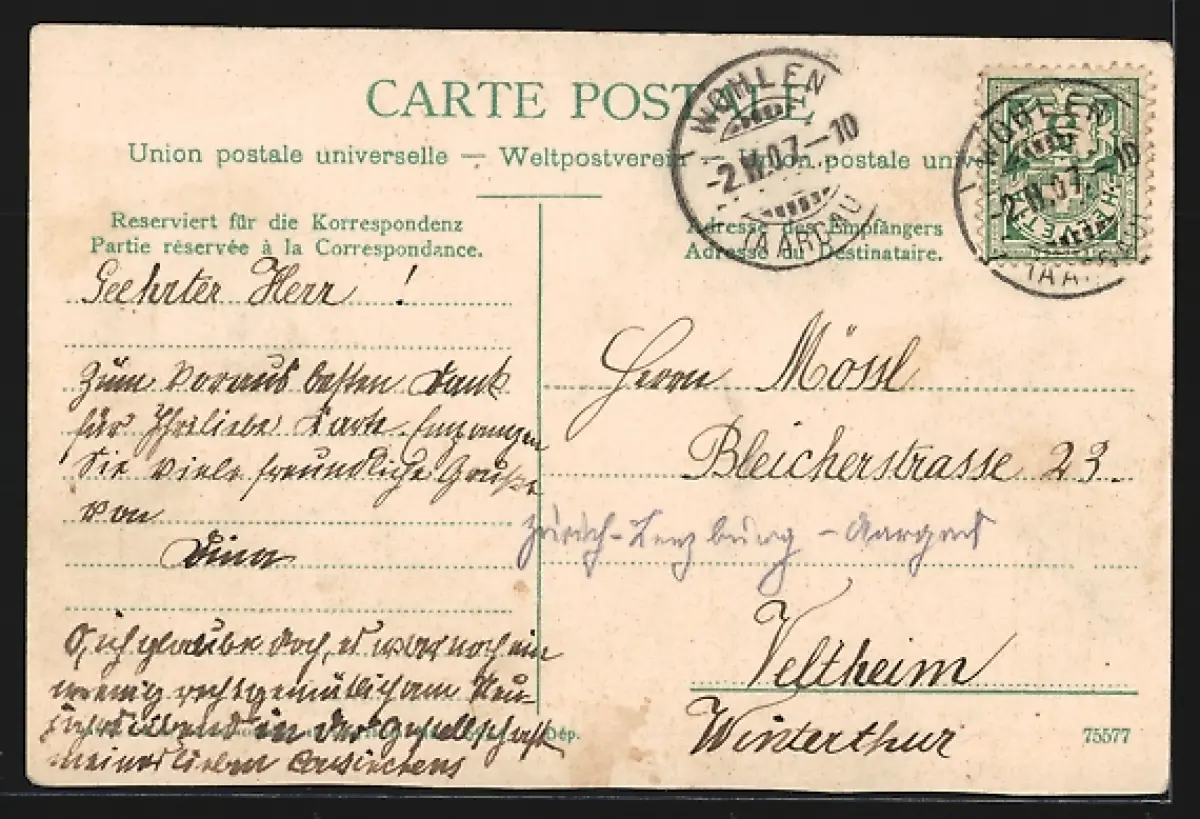 CARTE POSTALE
Union postale universelle — Weltpostverein — Union postale univ
WOHLEN
-2.IV.07.-10
(AARGAU)
WOHLEN
-2.IV.07.-10
(AARGAU)
HELVETIA
Reserviert für die Korrespondenz
Partie réservée à la Correspondance.
Adresse des Empfängers
Adresse du Destinataire.
Geehrter Herr !
Zum Voraus besten Dank
für Ihre liebe Karte. Empfangen
Sie viele freundliche Grüße
von
Dina
O, ich glaube doch, es war noch ein
wenig recht gemütlich am Neu-
jahrsabend in der Gesellschaft
meines lieben
Herrn Mössl
Bleicherstrasse 23.
Zürich-Lenzburg - Aargau
Veltheim
Winterthur
Dép.
75577